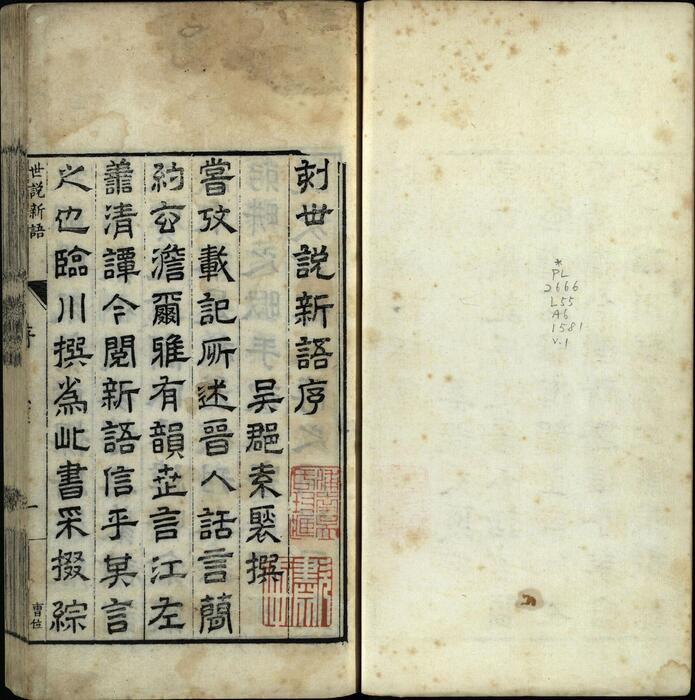 刻世說新語序
吳郡袁褧撰
嘗攷載記所述晉人話言簡
約玄澹爾雅有韻世言江左
善清譚今閱新語信乎其言
之也臨川撰為此書采掇綜
世說新語
序
一
*
PL
2666
L55
A6
1581
v.1